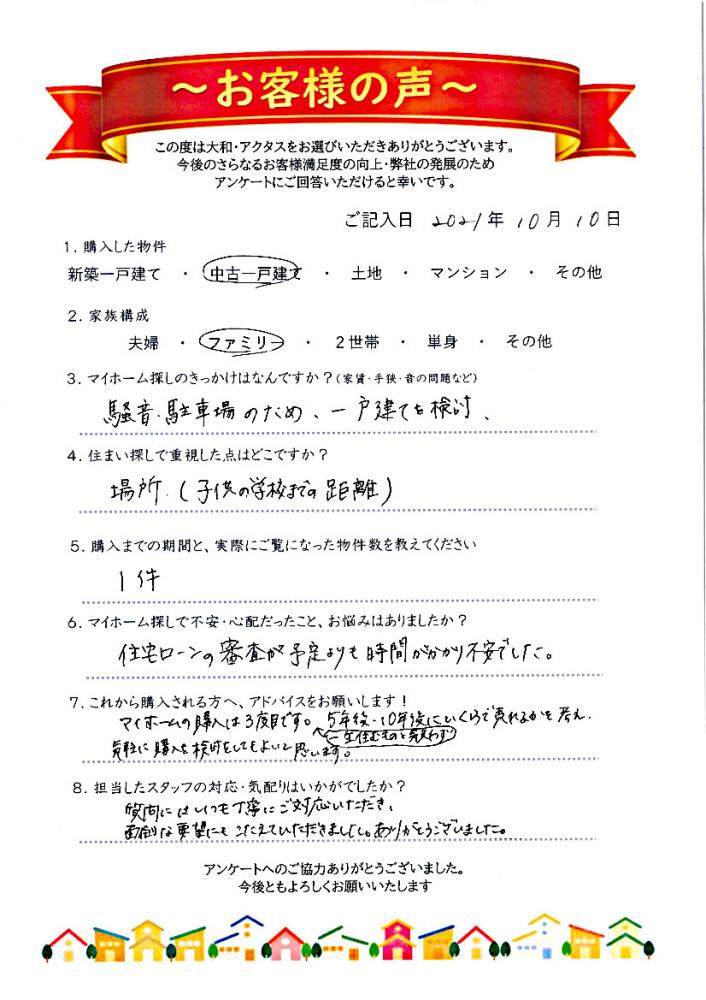 ～お客様の声～
この度は大和・アクタスをお選びいただきありがとうございます。
今後のさらなるお客様満足度の向上・弊社の発展のため
アンケートにご回答いただけると幸いです。
ご記入日 2021年 10月 10日
1. 購入した物件
新築一戸建て ・ 中古一戸建て ・ 土地 ・ マンション ・ その他
2. 家族構成
夫婦 ・ ファミリー ・ 2世帯 ・ 単身 ・ その他
3. マイホーム探しのきっかけはなんですか？(家賃・手狭・音の問題など)
騒音・駐車場のため、一戸建てを検討、
4. 住まい探しで重視した点はどこですか？
場所.（子供の学校までの距離）
5. 購入までの期間と、実際にご覧になった物件数を教えてください
1件
6. マイホーム探しで不安・心配だったこと、お悩みはありましたか？
住宅ローンの審査が予定よりも時間がかかり不安でした。
7. これから購入される方へ、アドバイスをお願いします！
マイホームの購入は3度目です。5年後・10年後にいくらで売れるかを考え、
一生住むものと思わず
気軽に購入を検討をしてもよいと思います。
8. 担当したスタッフの対応・気配りはいかがでしたか？
質問にはいつも丁寧にご対応いただき、
面倒な要望にもこたえていただきました。ありがとうございました。
アンケートへのご協力ありがとうございました。
今後ともよろしくお願いいたします